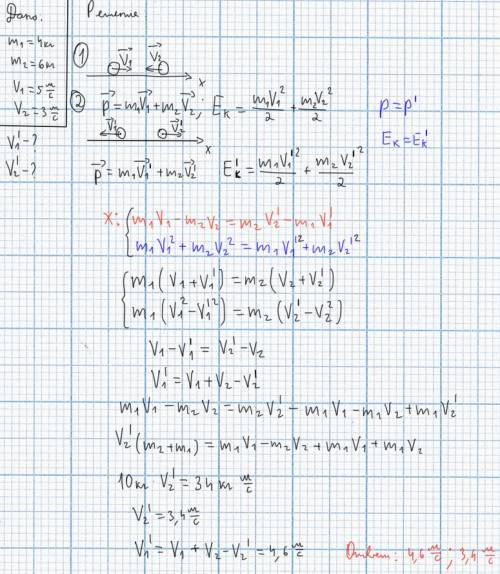 Дано.
m₁ = 4кг
m₂ = 6м
V₁ = 5 м/с
V₂ = 3 м/с
V₁' - ?
V₂' - ?
Решение
① V₁ V₂
x
② p = m₁V₁ + m₂V₂ ; Eк = m₁V₁²/2 + m₂V₂²/2
p = p'
Eк = Eк'
V₁' V₂'
x
p = m₁V₁' + m₂V₂' Eк' = m₁V₁'²/2 + m₂V₂'²/2
x: { m₁V₁ - m₂V₂ = m₂V₂' - m₁V₁'
m₁V₁² + m₂V₂² = m₁V₁'² + m₂V₂'²
{ m₁(V₁ + V₁') = m₂(V₂ + V₂')
m₁(V₁² - V₁'²) = m₂(V₂'² - V₂²)
V₁ - V₁' = V₂' - V₂
V₁' = V₁ + V₂ - V₂'
m₁V₁ - m₂V₂ = m₂V₂' - m₁V₁ - m₁V₂ + m₁V₂'
V₂'(m₂ + m₁) = m₁V₁ - m₂V₂ + m₁V₁ + m₁V₂
10кг · V₂' = 34 м/с
V₂' = 3,4 м/с
V₁' = V₁ + V₂ - V₂' = 4,6 м/с
Ответ: 4,6 м/с ; 3,4 м/с